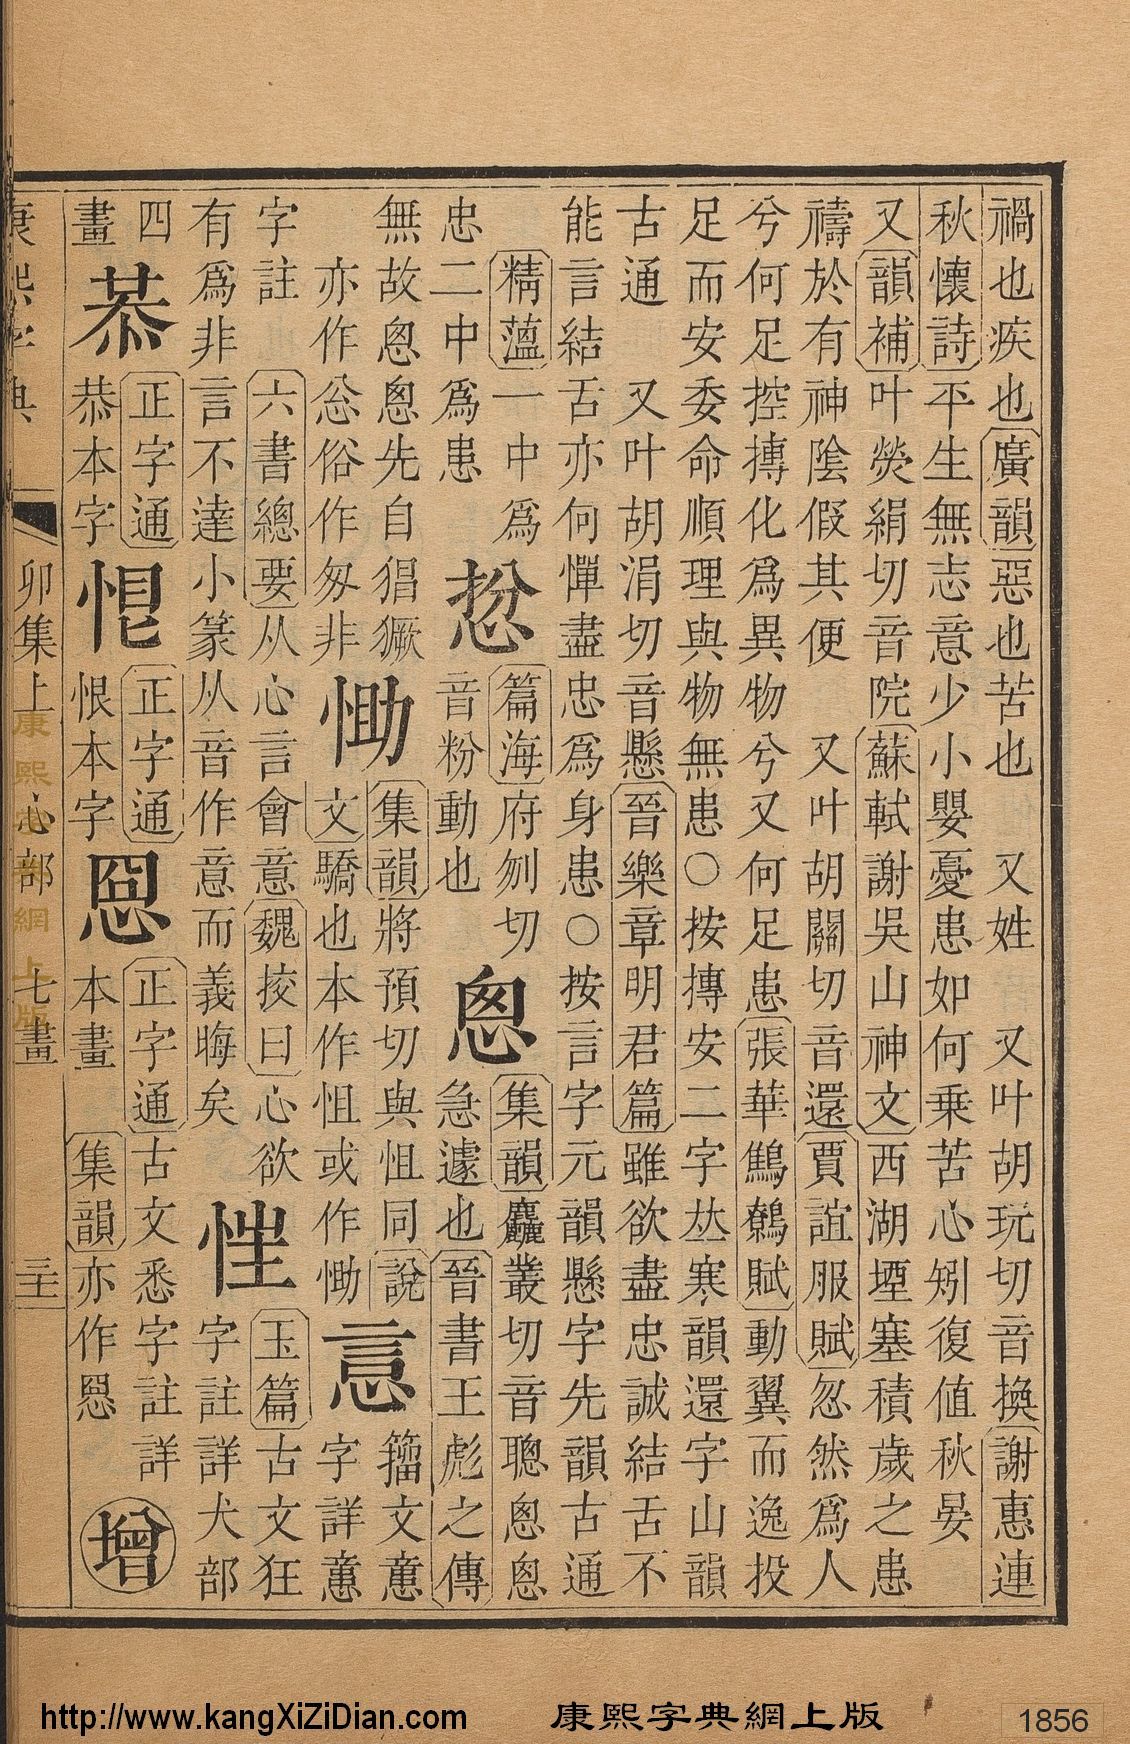 禍也疾也廣韻惡也苦也 又姓 又叶胡玩切音換謝惠連
秋懷詩平生無志意少小嬰憂患如何乗苦心矧復值秋晏
又韻補叶熒絹切音院蘇軾謝吳山神文西湖堙塞積歲之患
禱於有神隂假其便 又叶胡關切音還賈誼服賦忽然爲人
兮何足控摶化爲異物兮又何足患張華鷦鷯賦動翼而逸投
足而安委命順理與物無患○按摶安二字𠀤寒韻還字山韻
古通 又叶胡涓切音懸晉樂章明君篇雖欲盡忠誠結舌不
能言結舌亦何憚盡忠爲身患○按言字元韻懸字先韻古通
精薀一中爲
忠二中爲患
㥹
篇海府刎切
音粉動也
悤
集韻麤叢切音聰悤悤
急遽也晉書王彪之傳
無故悤悤先自猖獗
亦作忩俗作匆非
㔃
集韻將預切與怚同說
文驕也本作怚或作㔃
𢡃
籀文𢡃
字詳𢡃
字註 六書總要从心言會意魏挍曰心欲
有爲非言不達小篆从音作意而義晦矣
𢙯
玉篇古文狂
字註詳犬部
四
畫
㤨
正字通
恭本字
𢛄
正字通
恨本字
恖
正字通古文悉字註詳
本畫 集韻亦作㥶
增
康熙字典 卯集上 心部 七畫 二十
康熙字典網上版
http://www.kangXiZiDian.com 康熙字典網上版 1856